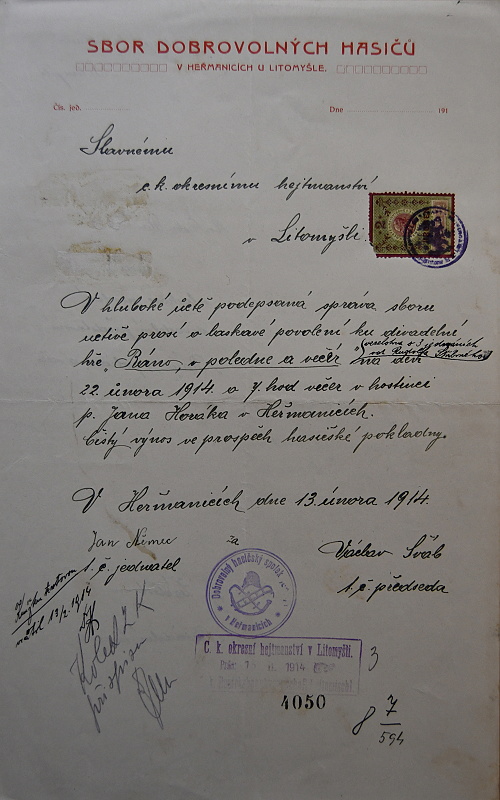 SBOR DOBROVOLNÝCH HASIČŮ
V HEŘMANICÍCH U LITOMYŠLE.
Čís. jed.
Dne 191
Slavnému
c. k. okresnímu hejtmanství
v Litomyšli.
V hluboké úctě podepsaná správa sboru
uctivě prosí o laskavé povolení ku divadelní
veselohra o 3 jednáních
hře „Ráno, v poledne a večer" od Rudolfa na den
22. února 1914 o 7 hod večer v hostinci
p. Jana Nováka v Heřmanicích.
Čistý výnos ve prospěch hasičské pokladny.
V Heřmanicích dne 13. února 1914.
Jan Němec
t. č. jednatel
za
Václav Šváb
t. č. předseda
13/2 1914
Dobrovolný hasičský spolek
v Heřmanicích
Koled ZK
při
C. k. okresní hejtmanství v Litomyšli.
1914
3
4050
8 7/594